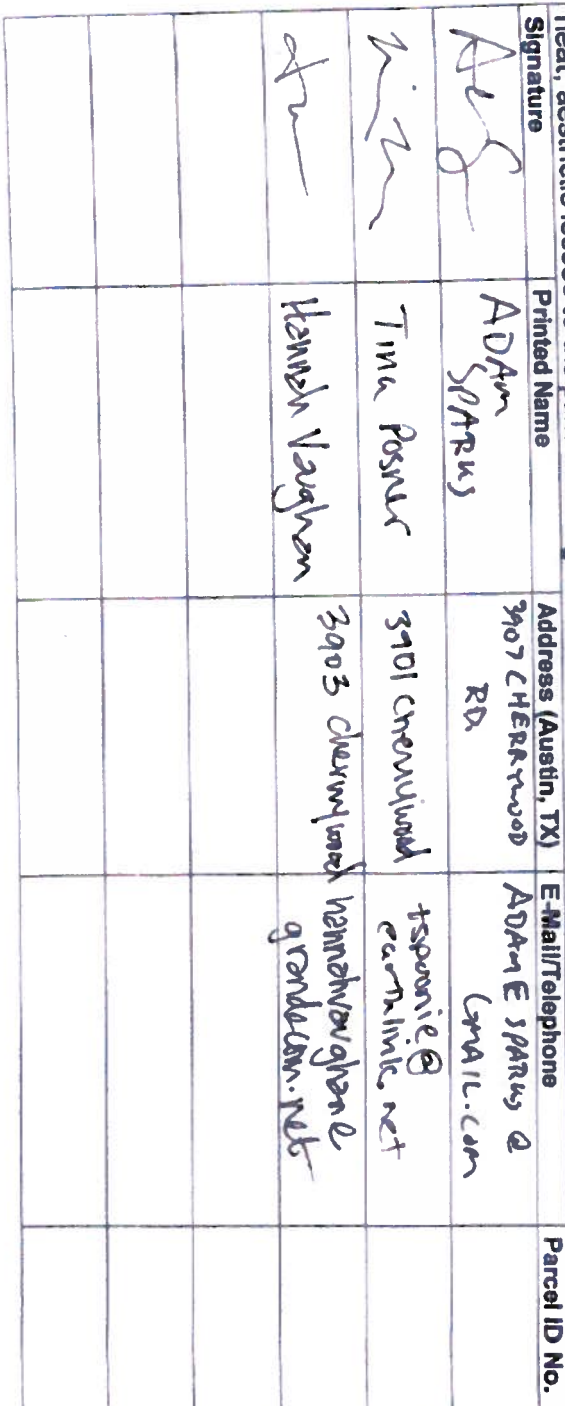 heat, aesthetic losses to the
Signature Printed Name Address (Austin, TX) E-Mail/Telephone Parcel ID No.
ADAM 3907 CHERRYWOOD ADAMESPARKS@
SPARKS RD. GMAIL.COM
Tina Posner 3901 Cherrywood tspoonie@
earthlink.net
Hannah Vaughan 3903 cherrywood hannahvaughan@
grandecom.net